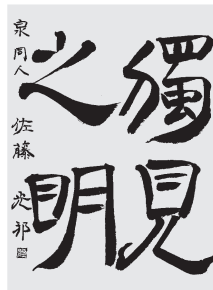 獨見
之明
泉同人 佐藤光邨